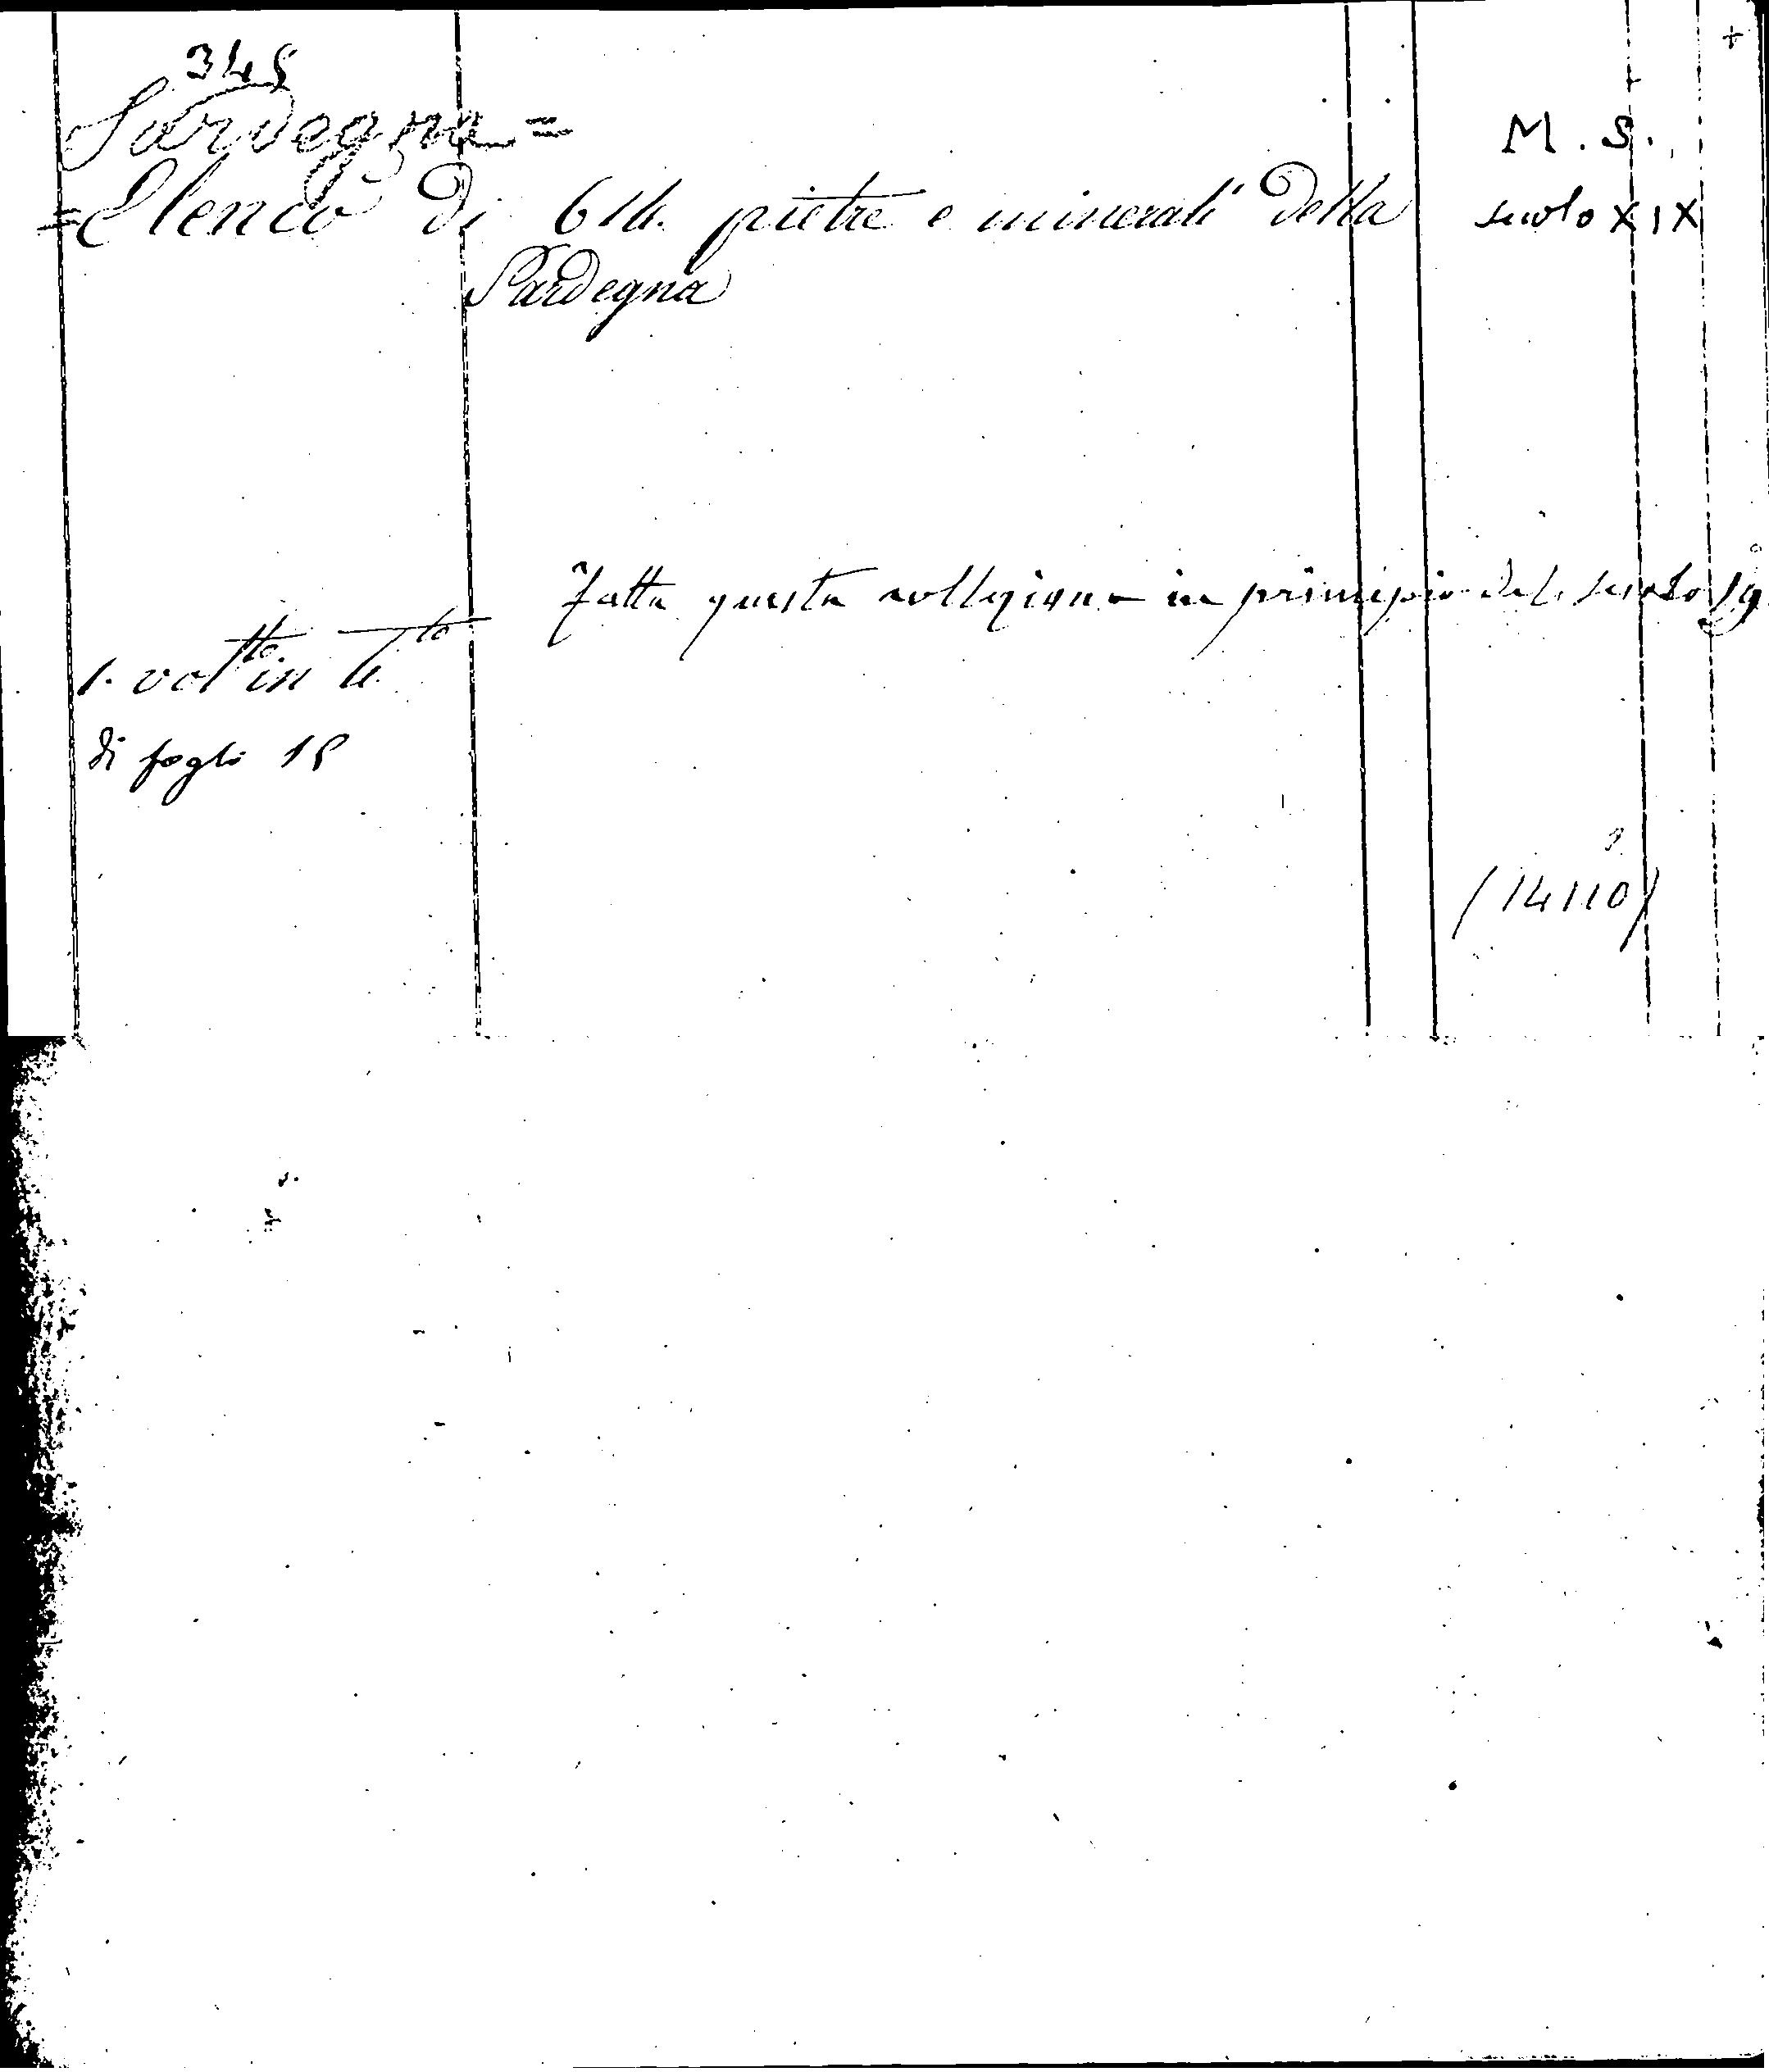 345
+
Sardegna =
M. S.
= Elenco di 614. pietre e minerali della
secolo XIX
Sardegna
Fatta questa collezione in principio del secolo 19
1. vol.tto in 4.to
di fogli 15
(14110)